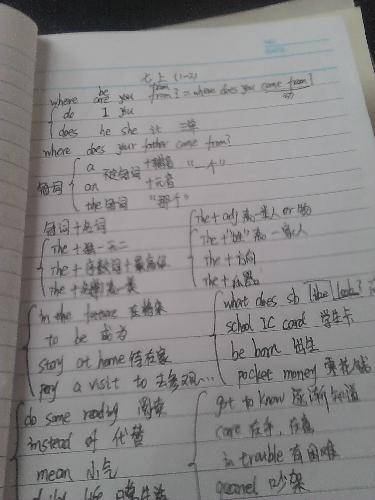 七上 (1-2)
where are be you from from? = where does you come from?
do I you
does he she it 三单
where does your father come from?
冠词 a 不定冠词 +辅音 "一个"
an +元音
the 定冠词 "那个"
冠词 + 名词
The + 独一无二
The + 序数词 + 最高级
The + adj 表一类人 or 物
The + "姓" 表一家人
The + 方向
The + 乐器
in the future 在将来
to be 成为
stay at home 待在家
pay a visit to 去参观...
what does sb like look
school IC card 学生卡
be born 出生
pocket money 零花钱
do some reading 阅读
instead of 代替
mean 小气
daily life 日常生活
get to know 逐渐知道
care 在乎，在意
in trouble 有困难
quarrel 吵架